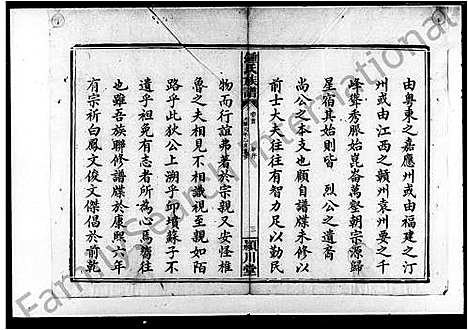 由粤東之嘉應州或由福建之汀
州或由江西之赣州袁州要之千
峰聳秀脉始崑崙萬𣲖朝宗源歸
星宿其始則皆 烈公之遺裔
尚公之本支也顧自譜牒未修以
前士大夫往往有智力足以勤民
鍾氏族譜
卷首
三
潁川堂
物而行誼弗著於宗親又安怪椎
魯之夫相見不相識視至親如陌
路乎此狄公上溯乎邱墳蘇子不
遺乎祖免有志者所為心焉嚮往
也雖吾族聯修譜牒於康熙六年
有宗祈白鳳文俊文傑倡於前乾
FamilySearch International